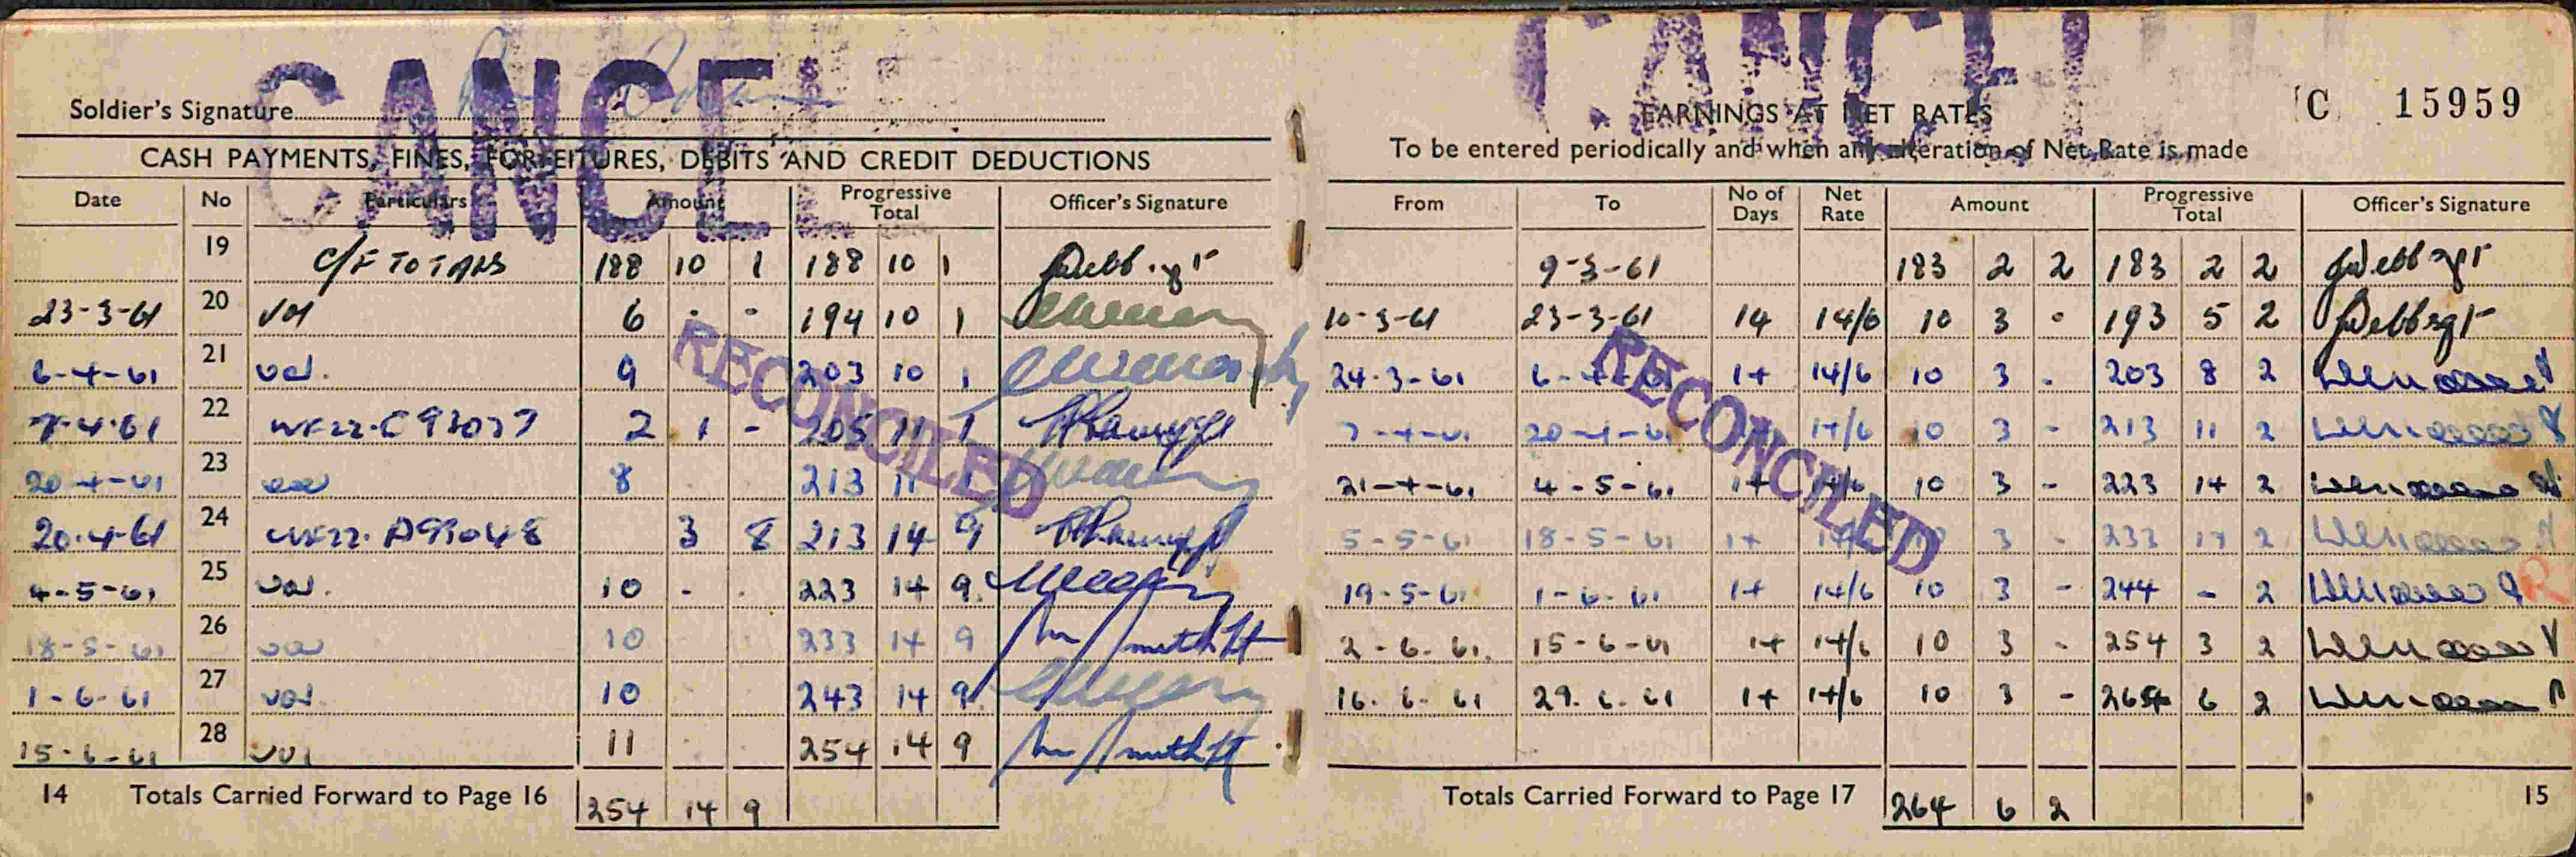 CANCEL
Soldier's Signature
CASH PAYMENTS, FINES, FORFEITURES, DEBITS AND CREDIT DEDUCTIONS
Date No Particulars Amount Progressive Total Officer's Signature
19 C/F TOTALS 188 10 1 188 10 1
23-3-61 20 6 - - 194 10 1
6-4-61 21 9 203 10 1
7-4-61 22 2 1 - 205 11 1
20-4-61 23 8 213 11 1
20.4.61 24 3 8 213 14 9
4-5-61 25 10 - . 223 14 9
18-5-61 26 10 233 14 9 Smith Lt
1-6-61 27 10 243 14 9
15-6-61 28 11 254 14 9 Smith Lt
RECONCILED
14 Totals Carried Forward to Page 16 254 14 9
CANCEL
C 15959
EARNINGS AT NET RATES
To be entered periodically and when any alteration of Net Rate is made
From To No of Days Net Rate Amount Progressive Total Officer's Signature
9-3-61 183 2 2 183 2 2 Webb Sgt
10-3-61 23-3-61 14 14/6 10 3 - 193 5 2 Webb Sgt
24-3-61 6-4-61 14 14/6 10 3 - 203 8 2
7-4-61 20-4-61 14 14/6 10 3 - 213 11 2
21-4-61 4-5-61 14 14/6 10 3 - 223 14 2
5-5-61 18-5-61 14 14/6 10 3 - 233 17 2
19-5-61 1-6-61 14 14/6 10 3 - 244 - 2 R
2-6-61 15-6-61 14 14/6 10 3 - 254 3 2
16.6.61 29.6.61 14 14/6 10 3 - 264 6 2
RECONCILED
Totals Carried Forward to Page 17 264 6 2 15